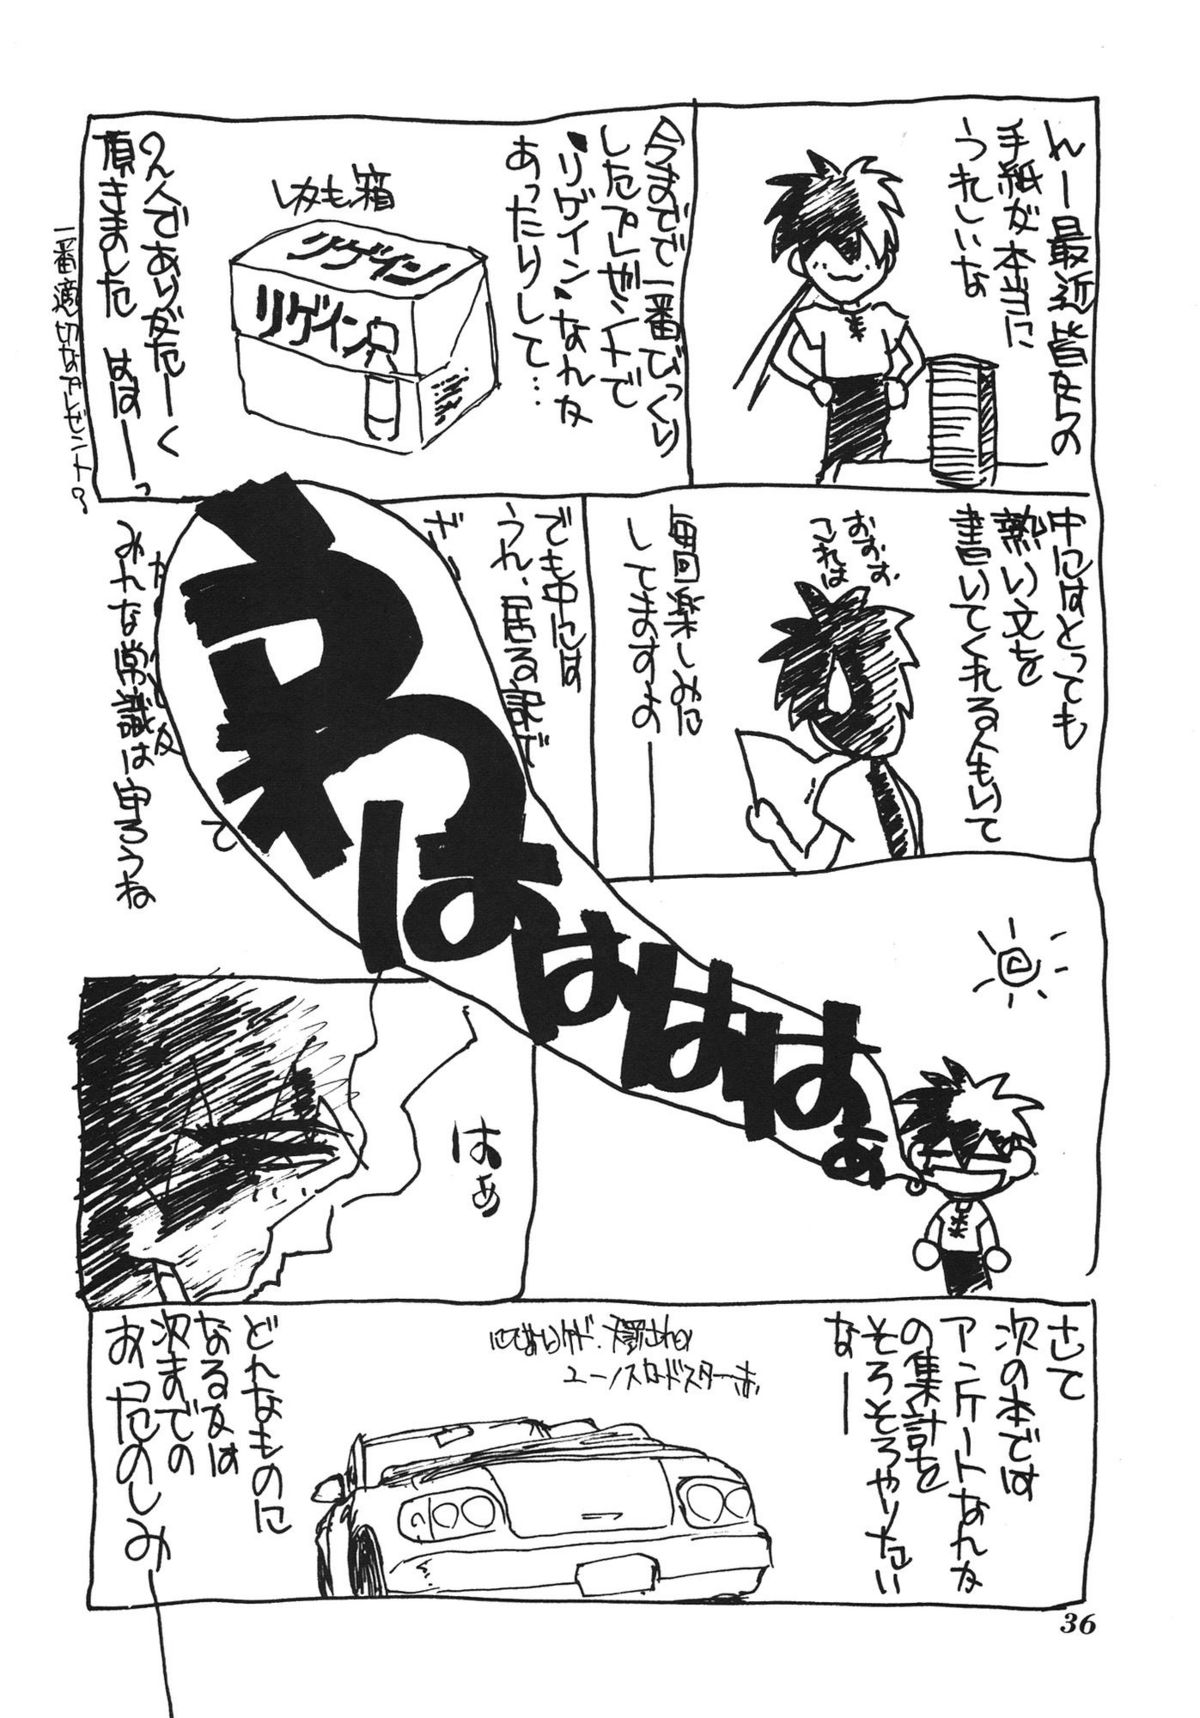 んー最近皆たちの
手紙が本当に
うれしいな
今までで一番びっくり
したプレゼントで
"リゲイン"なんな
あったりして…
しかも箱
リゲイン
リゲイン
のんでありがたーく
頂きました はすーっ
一番適切なプレゼント?
中にはとっても
熱い文を
書いてくれる人もいて
おすす
これは
毎回楽しみに
してますよのー
でも中には
うれ、居る訳だ
ざ
て
みんな常識は守ろうね
うわはははははぁ
はぁ
さて
次の本では
アンケートなんな
の集計を
そろそろやりたい
なー
にてないけど、
ユーノスロードスターよ
どんなものに
なるかは
次までの
おったのしみー
36